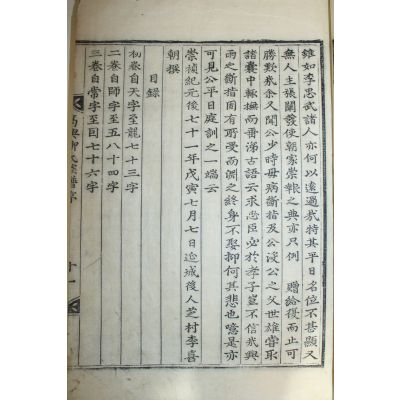 雖如李思武諸人亦何以遠過哉特其平日名位不甚顯又
無人主張闡發使朝家崇報之典亦只例 贈給復而止可
勝歎哉余又聞公少時母病斷指及公沒公之父世雄嘗取
諸囊中 撫而垂涕古語云求忠臣必於孝子豈不信哉
雨之斷指固有 受而 之終身不娶抑何其悲也噫是亦
可見公平日庭訓之一端云
崇禎紀元後七十一年戊寅七月七日 城後人芝村李喜
朝撰
目錄
初卷自天字至龍七十三字
二卷自師字至五八十四字
三卷自常字至 七十六字
高興柳氏族譜序 十一